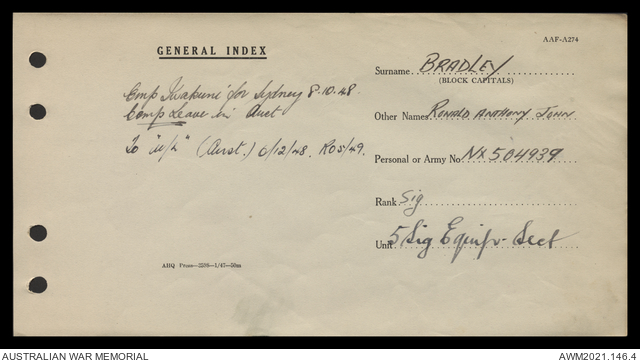 AAF-A274
GENERAL INDEX
Surname BRADLEY
(BLOCK CAPITALS)
Emp Iwakuni for Sydney 8.10.48
Comp Leave in Aust
Other Names RONALD ANTHONY JOHN
To (Aust.) 6/12/48. RO5/49.
Personal or Army No NX504939
Rank Sig
Unit 5 Sig Equip. Sect
AHQ Press—2598—1/47—50m
AUSTRALIAN WAR MEMORIAL
AWM2021.146.4